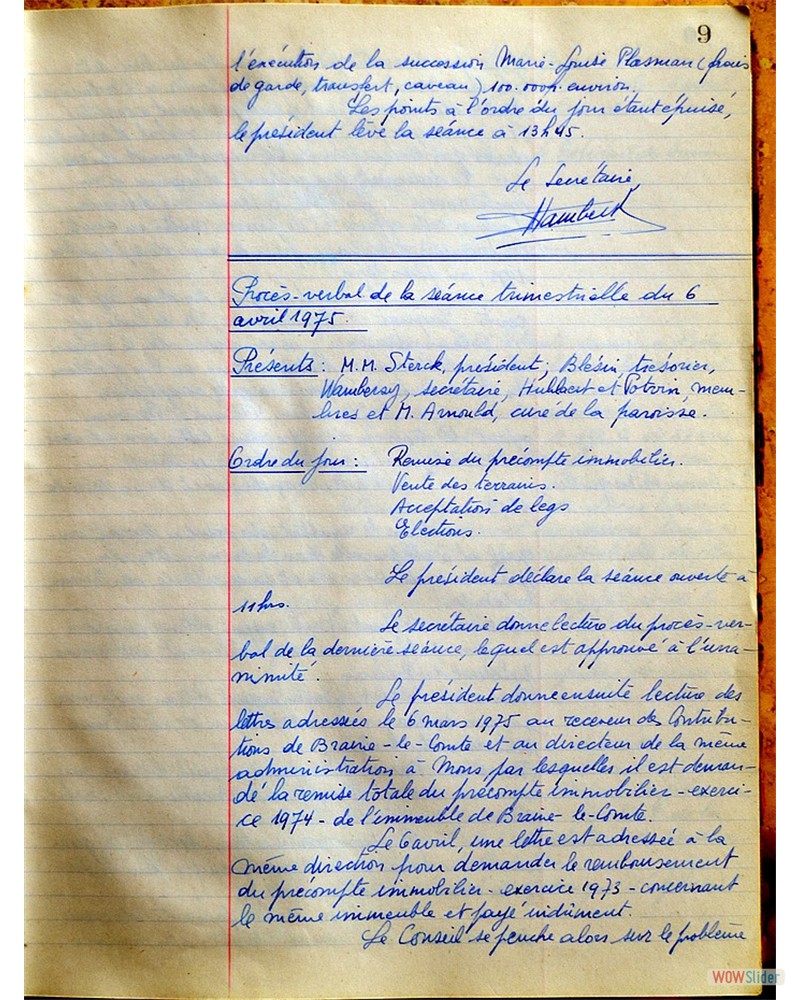 9
l'exécution de la succession Marie-Louise Plasman (frais
de garde, transfert, caveau) 100.000fr. environ.
Les points à l'ordre du jour étant épuisé,
le président lève la séance à 13h45.
Le Secrétaire,
Procès-verbal de la séance trimestrielle du 6
avril 1975.
Présents : M.M. Sterck, président; Blésin, trésorier,
Wambersy, secrétaire, Hubbart et Potvin, mem-
bres et M. Arnould, curé de la paroisse.
Ordre du jour : Remise du précompte immobilier.
Vente des terrains.
Acceptation de legs
Elections.
Le président déclare la séance ouverte à
11hrs.
Le secrétaire donne lecture du procès-ver-
bal de la dernière séance, lequel est approuvé à l'una-
nimité.
Le président donne ensuite lecture des
lettres adressées le 6 mars 1975 au receveur des Contribu-
tions de Braine-le-Comte et au directeur de la même
administration à Mons par lesquelles il est deman-
dé la remise totale du précompte immobilier - exerci-
ce 1974 - de l'immeuble de Braine-le-Comte.
Le 6 avril, une lettre est adressée à la
même direction pour demander le remboursement
du précompte immobilier - exercice 1973 - concernant
le même immeuble et payé indûment.
Le Conseil se penche alors sur le problème
WOWSlider